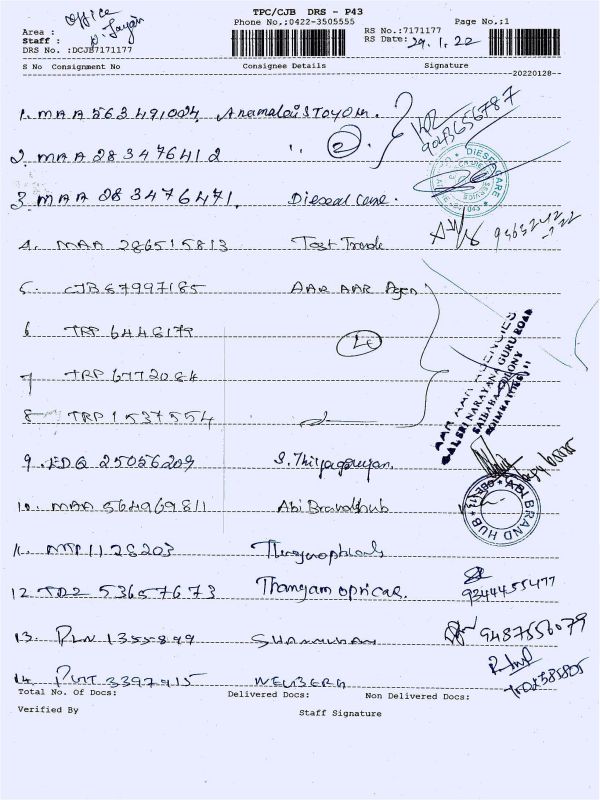 TPC/CJB DRS - P43
Office
Area :
Phone No.:0422-3505555
Page No.:1
Staff :
RS No.:7171177
DRS No. :DCJB7171177
RS Date: 29.1.22
S No Consignment No Consignee Details Signature
20220128
1. MAA 563491004
2. MAA 283476412 " 2
9043656787
3. MAA 283476471. Dieseal Care.
DIESEL CARE
4. MAA 286515813 Test Trade
5. CJB 67997185 AAR AAR Agen
6 TRP 6448179
4
7 TRP 6772084
8 TRP 1537554
AAR AAR AGENCIES
SRI NARAYANA GURU ROAD
SAIBABA COLONY
COIMBATORE-11
9. EDQ 25056209 S. Thiyagarayan.
10. MAA 564969811 Abi Brandhub
ABI BRAND HUB
11. MTP 1128203
12 TDZ 53657673 Thangam optical.
9244455477
13. PLN 1355899
9487556079
14. 3397915
Total No. Of Docs: Delivered Docs: Non Delivered Docs:
Verified By Staff Signature